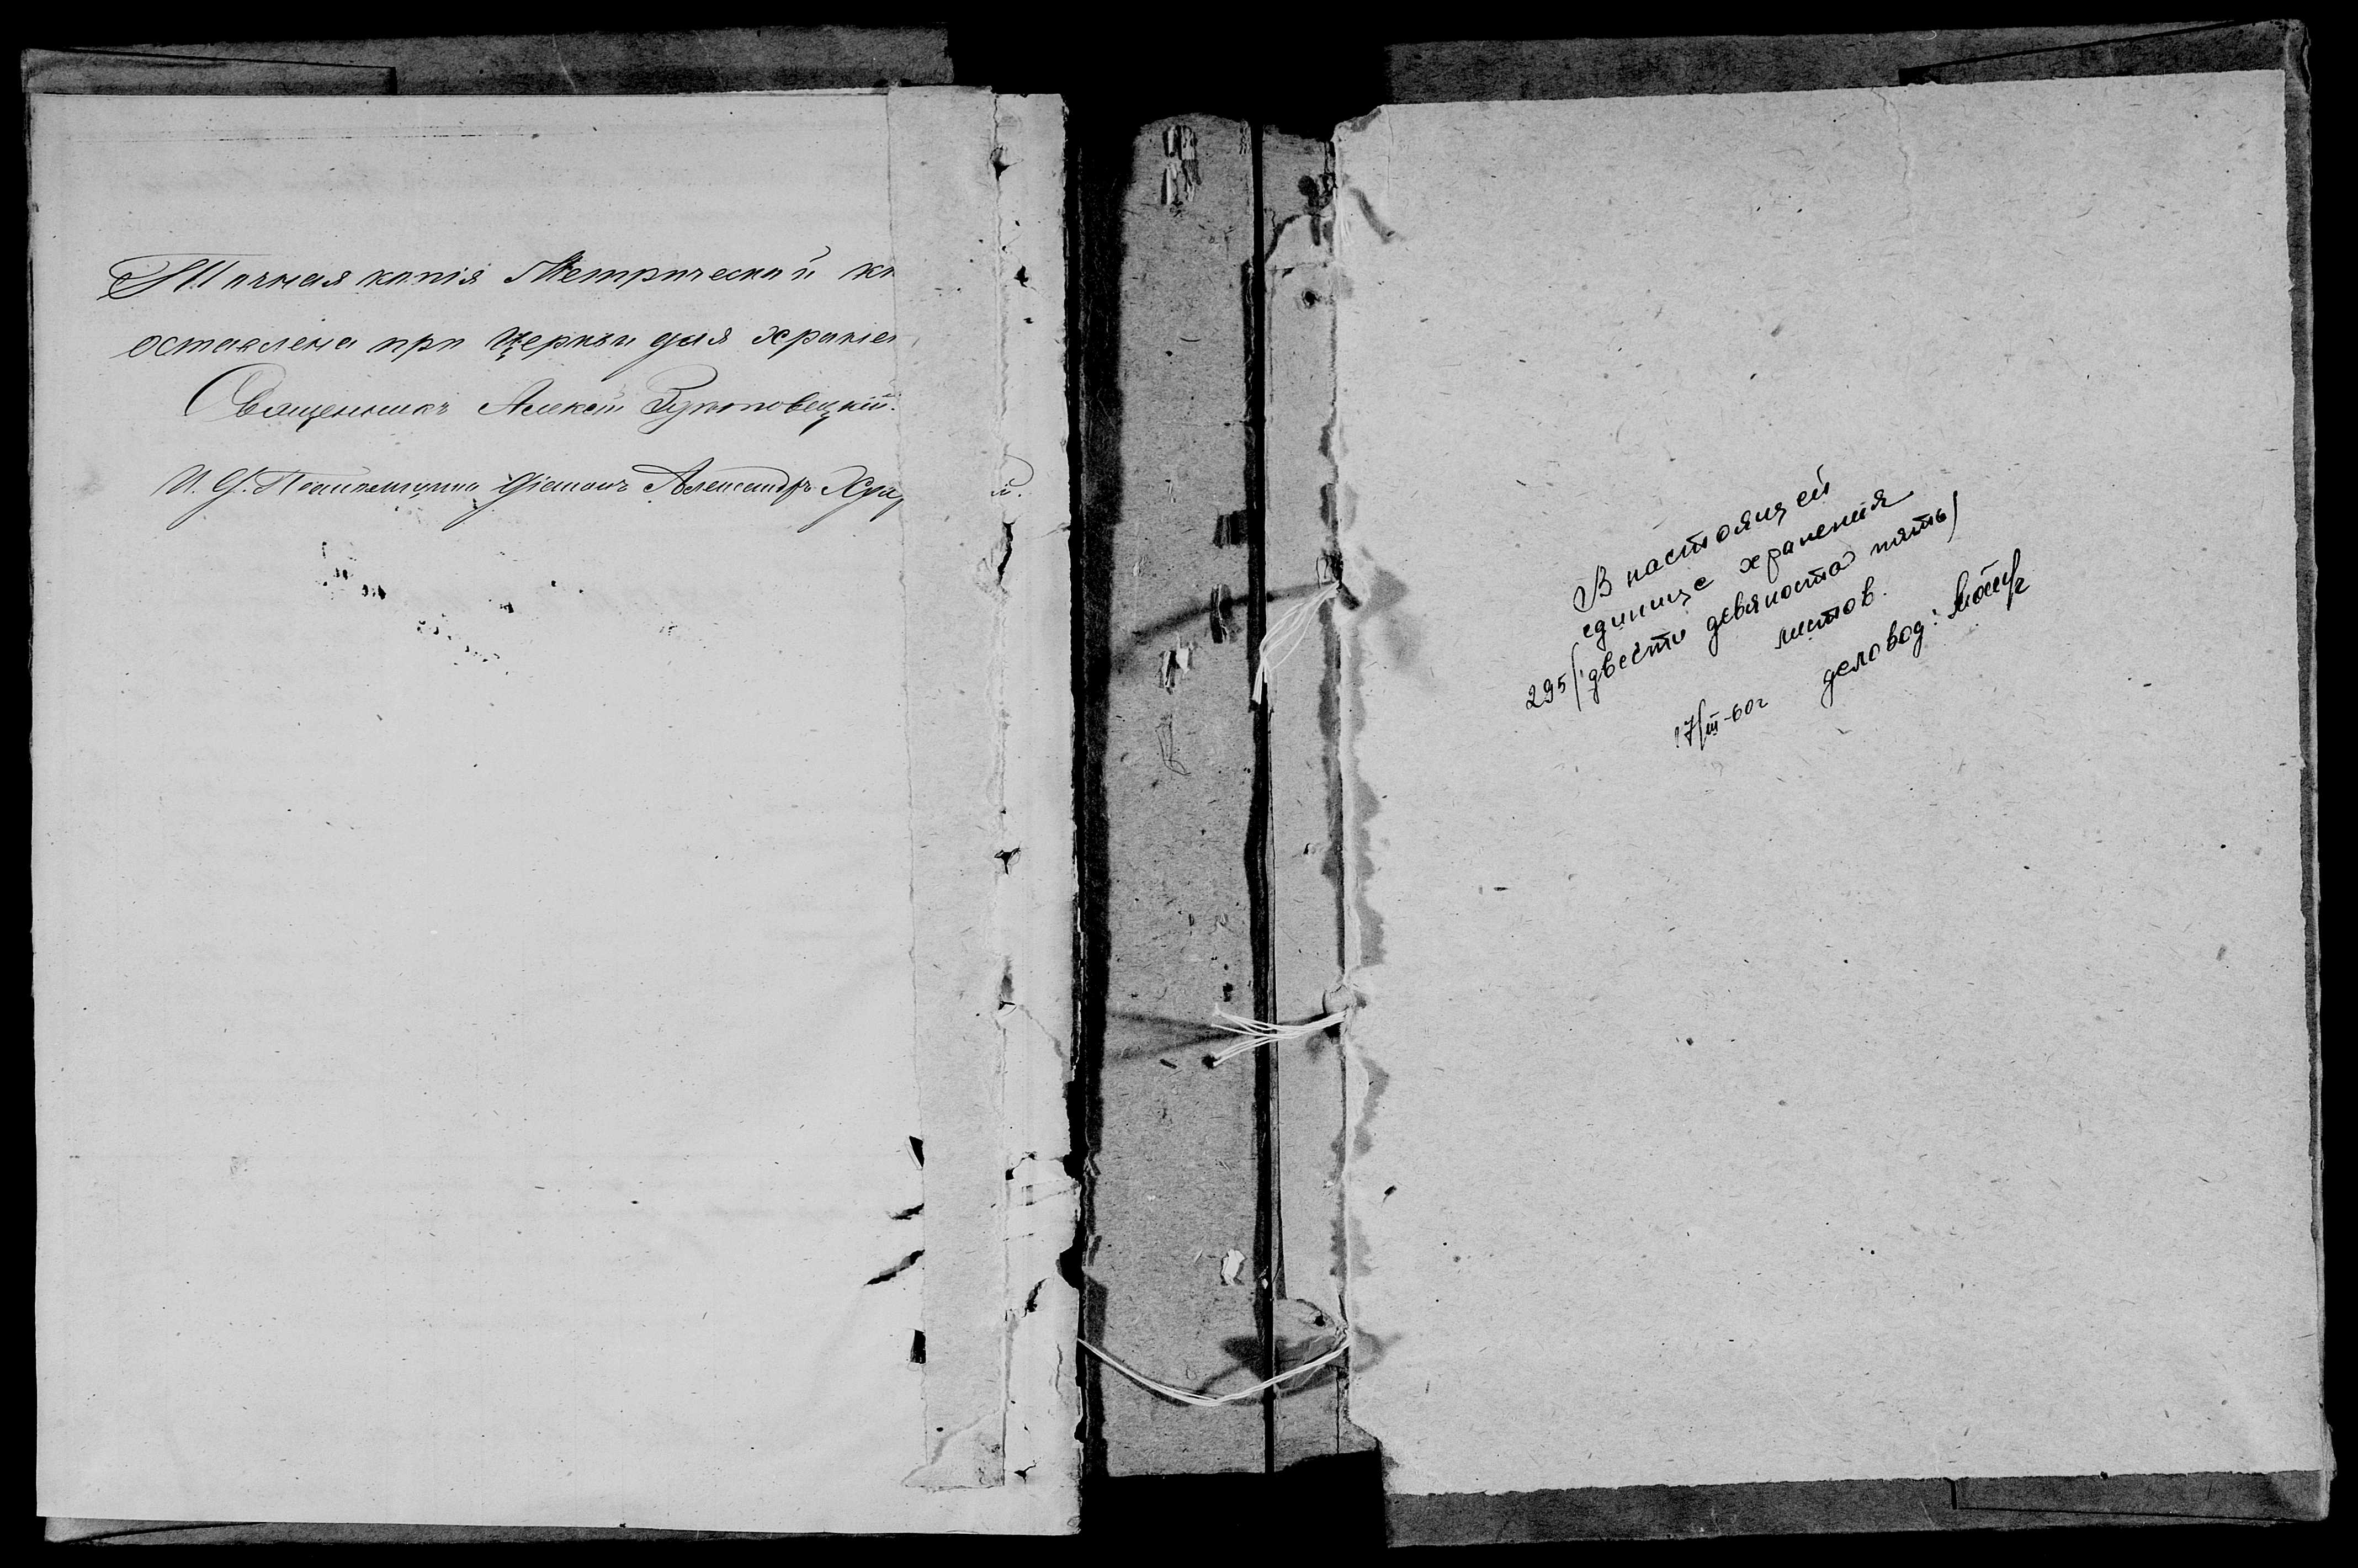 Точная копія Метрической кн
оставлена при Церкви для хранен
Священникъ Алексѣй
И. д. Псаломщика Діаконъ Александръ
В настоящей
единице хранения
295 (двести девяносто пять)
листов.
17/III-60г деловод: